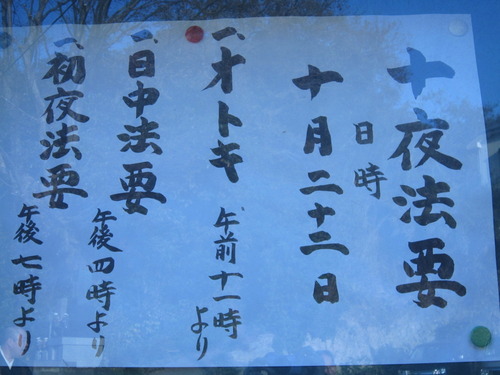 十夜法要
日時
十月二十二日
一、オトキ 午前十一時より
一、日中法要 午後四時より
一、初夜法要 午後七時より